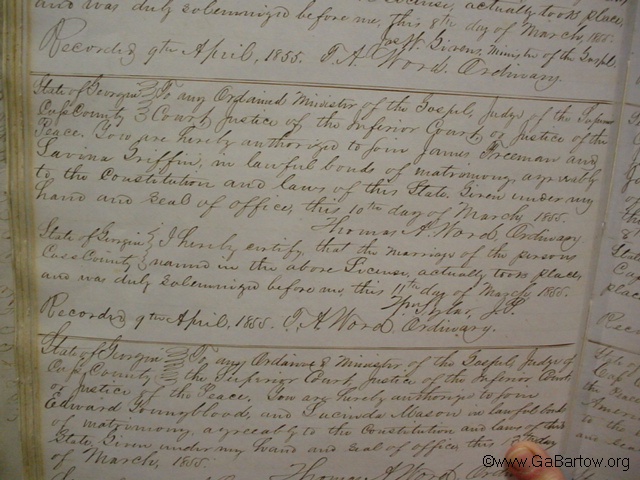 and was duly solemnized before me, this 8th day of March, 1855.
Jas. H. Givens, Minister of the Gospel
Recorded 9th April, 1855. T. A. Word. Ordinary.
State of Georgia } To any Ordained Minister of the Gospel, Judge of the Superior
Cass County } Court, Justice of the Inferior Court, or Justice of the
Peace. You are hereby authorized to join James Freeman and
Lavina Griffin, in lawful bonds of matrimony, agreeably
to the Constitution and laws of this State. Given under my
hand and seal of office, this 10th day of March, 1855.
Thomas A. Word. Ordinary
State of Georgia } I hereby certify, that the marriage of the persons
Cass County } named in the above License, actually took place,
and was duly solemnized before me, this 11th day of March, 1855.
J.P.
Recorded 9th April, 1855. T. A. Word. Ordinary.
State of Georgia } To any Ordained Minister of the Gospel, Judge of
Cass County } the Superior Court, Justice of the Inferior Court
or Justice of the Peace. You are hereby authorized to join
Edward Youngblood, and Lucinda Mason in lawful bonds
of matrimony, agreeably to the Constitution and laws of this
State. Given under my hand and seal of office, this day
of March, 1855.
Thomas A. Word. Ordinary
©www.GaBartow.org